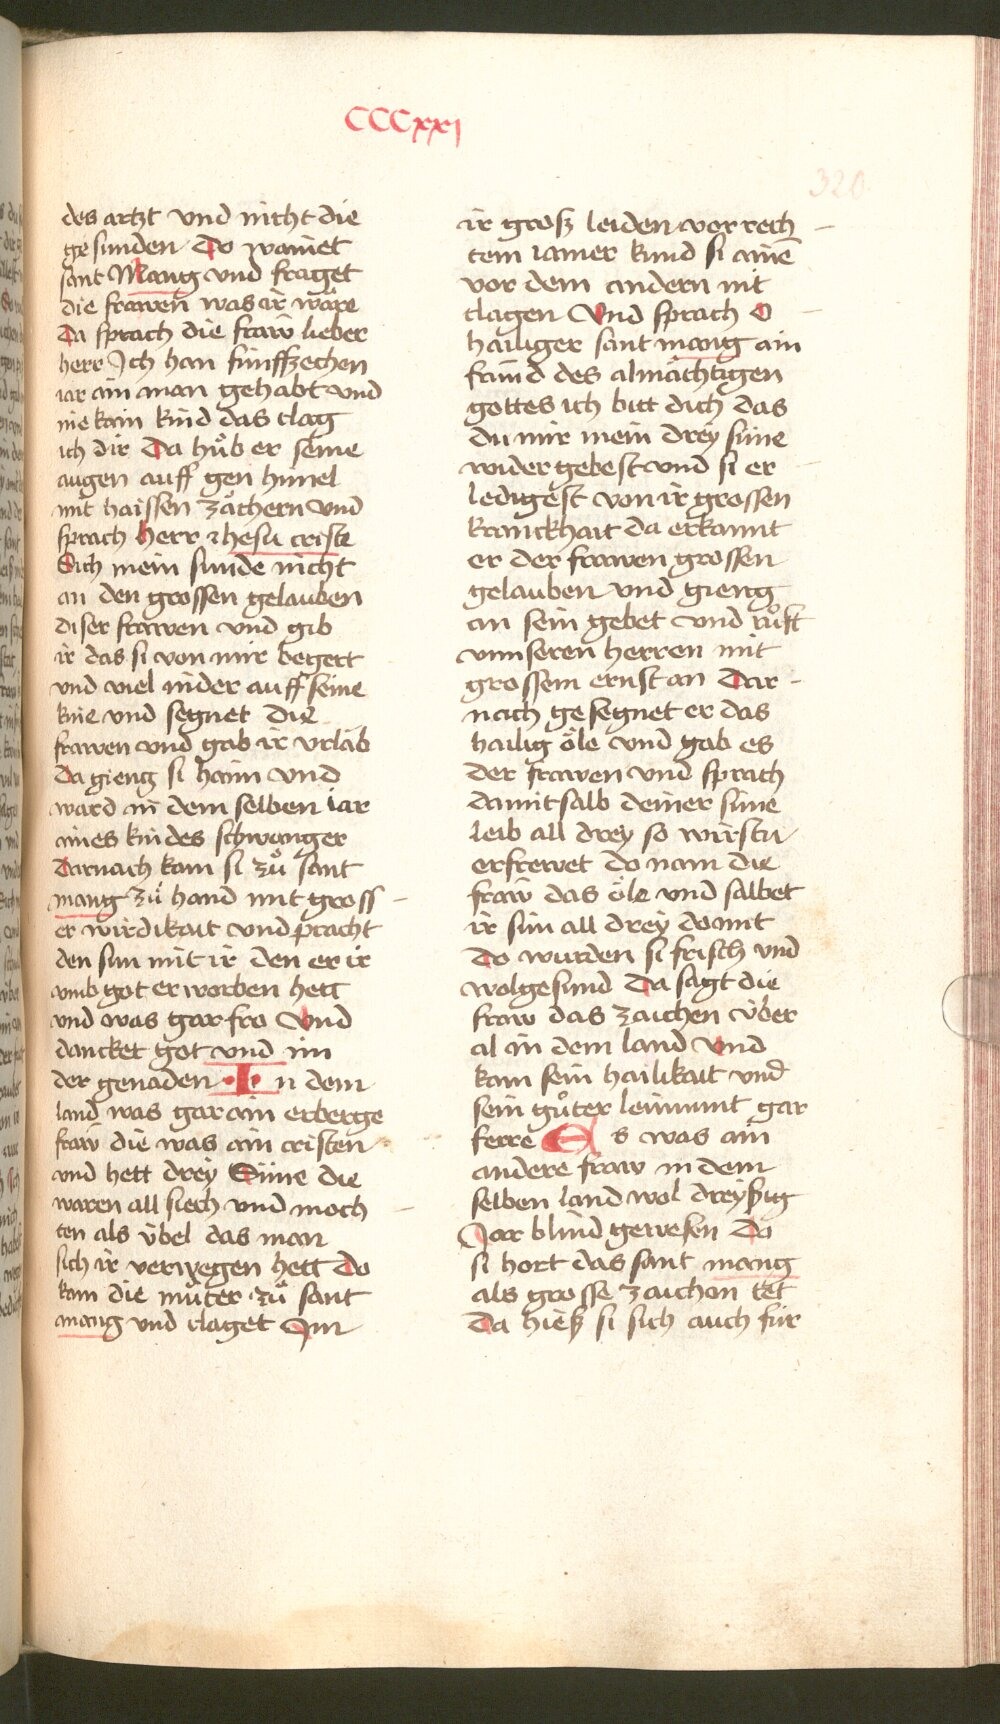 CCCxxj
320.
des artzt vnd nicht die
gesunden Do wainet
sant Mang vnd fraget
die frawen was ir wäre
Da sprach die fraw lieber
herr Ich han funffzechen
iar ain man gehabt vnd
nie kain kind das clag
ich dir Da hůb er seine
augen auff gen himel
mit haissen zächern vnd
sprach herr Jhesu criste
Sich mein sunde nicht
an den grossen gelauben
diser frawen vnd gib
ir das si von mir begert
vnd viel nider auff seine
knie vnd segnet die
frawen vnd gab ir vrlab
Da gieng si haim vnd
ward in dem selben iar
aines kindes schwanger
Darnach kam si zů sant
mang zů hand mit gross
er wirdikait vnd pracht
den sun mit ir den er ir
vmb got erworben hett
vnd was gar fro Vnd
dancket got vnd im
der genaden In dem
land was gar ain erberge
fraw die was ain cristen
vnd hett drey Süne die
waren all siech vnd moch
ten als übel das man
sich ir verwegen hett Do
kam die můter zů sant
mang vnd claget Im
ir grosz leiden vor rech
tem iamer kund si ainē
vor dem andern nit
clagen Vnd sprach O
hailiger sant mang ain
fraind des almächtigen
gottes ich bitt dich das
du mir mein drey süne
wider gebest vnd si er
ledigest von ir grossen
kranckhait da erkannt
er der frawen grossen
gelauben vnd gieng
an sein gebet vnd růft
vnnseren herren mit
grossem ernst an Dar
nach gesegnet er das
hailig öle vnd gab es
der frawen vnd sprach
damit salb deiner süne
leib all drey so wirstu
erfrewet do nam die
fraw das öle vnd salbet
ir sün all drey damit
Do wurden si frisch vnd
wolgesund Da sagt die
fraw das zaichen über
al in dem land Vnd
kam sein hailikait vnd
sein gůter leimunt gar
ferre Es was ain
andere fraw in dem
selben land wol dreyßig
Jar blind gewesen Do
si hort das sant mang
als grosse zaichen tet
Da hieß si sich auch für